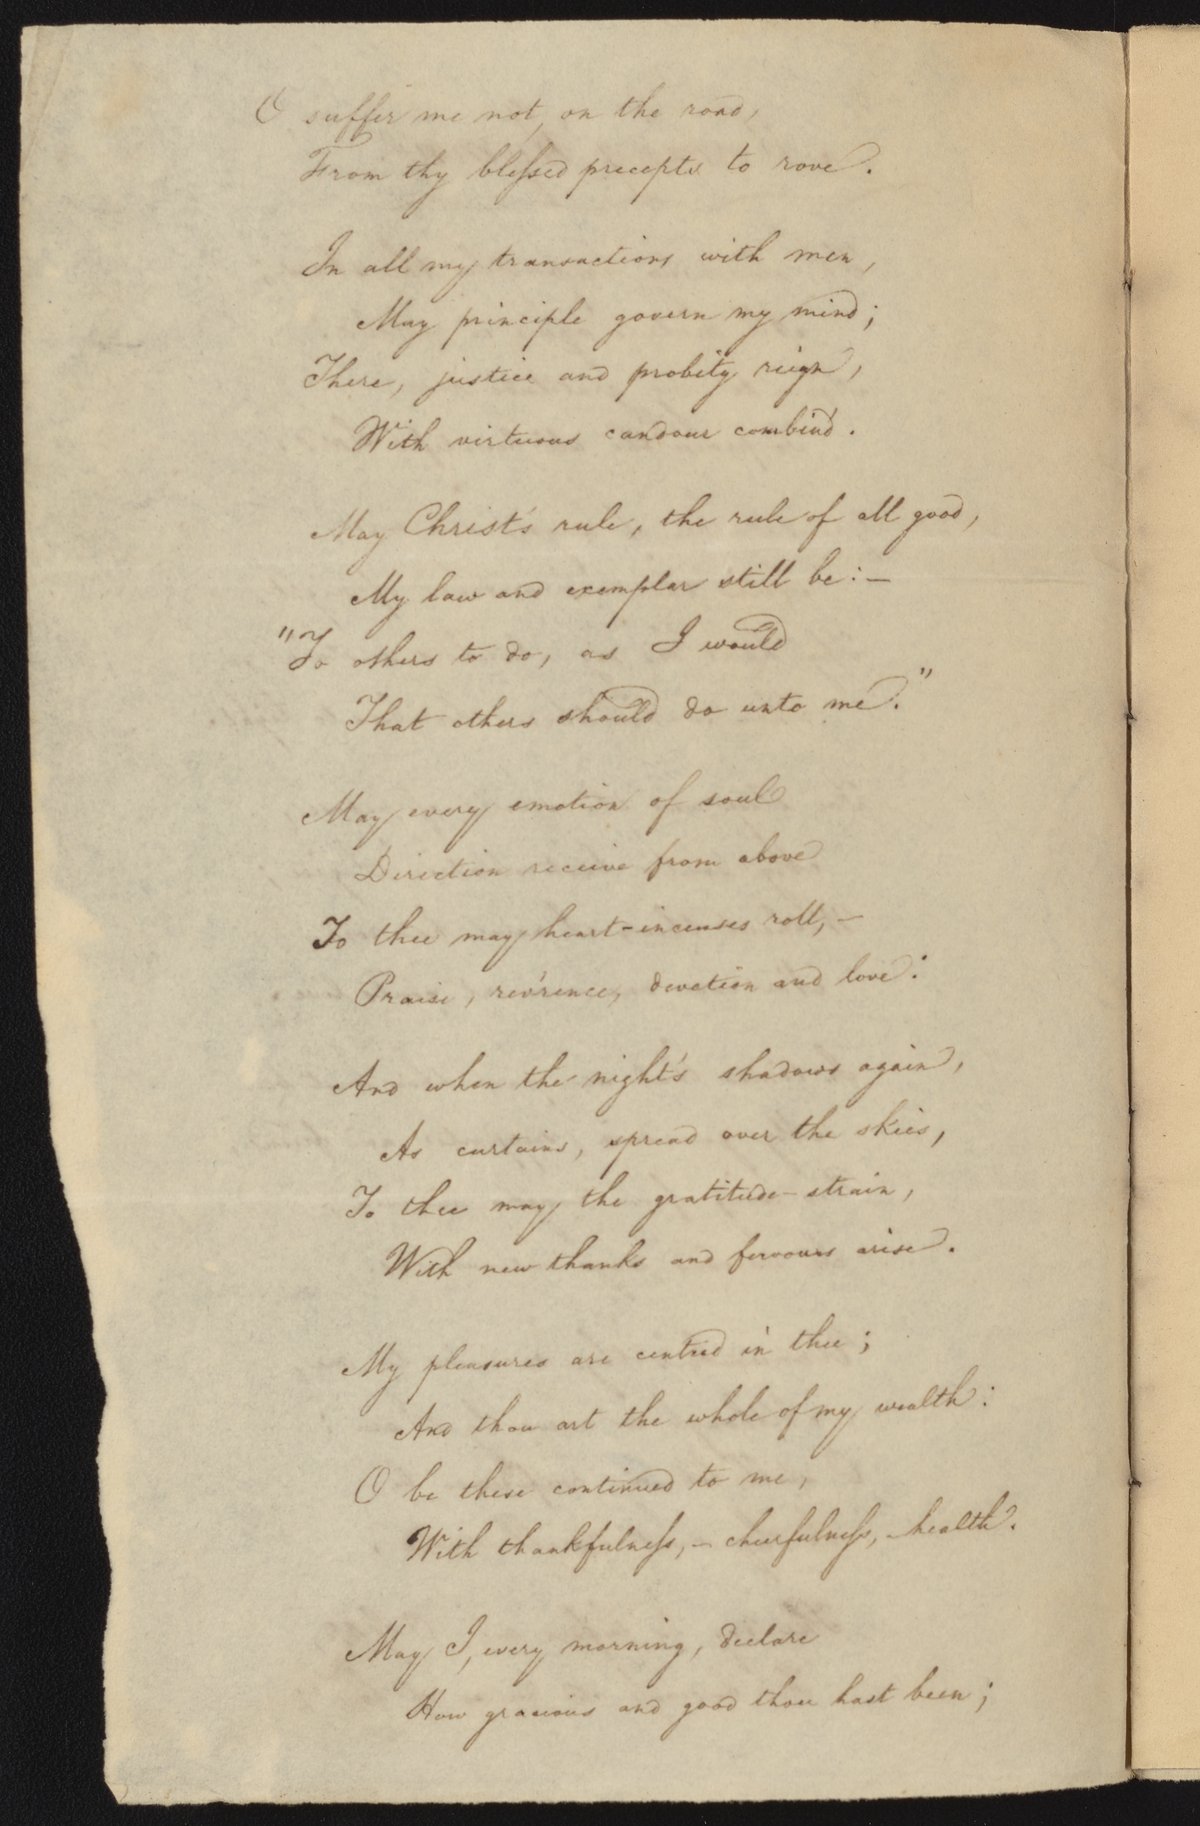 O suffer me not, on the road,
From thy blessed precepts to rove.
In all my transactions with men,
May principle govern my mind;
There, justice and probity reign,
With virtuous candour combin'd.
May Christ's rule, the rule of all good,
My law and exemplar still be:—
"To others to do, as I would
That others should do unto me."
May every emotion of soul
Direction receive from above
To thee may heart-incenses roll,—
Praise, rev'rence, devotion and love:
And when the night's shadows again,
As curtains, spread over the skies,
To thee may the gratitude-strain,
With new thanks and fervours arise.
My pleasures are centred in thee;
And thou art the whole of my wealth:
O be these continued to me,
With thankfulness,—cheerfulness,—health.
May I, every morning, declare
How gracious and good thou hast been;